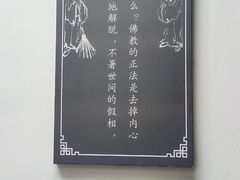 么？佛教的正法是去掉内心
地解脱，不著世间的假相。